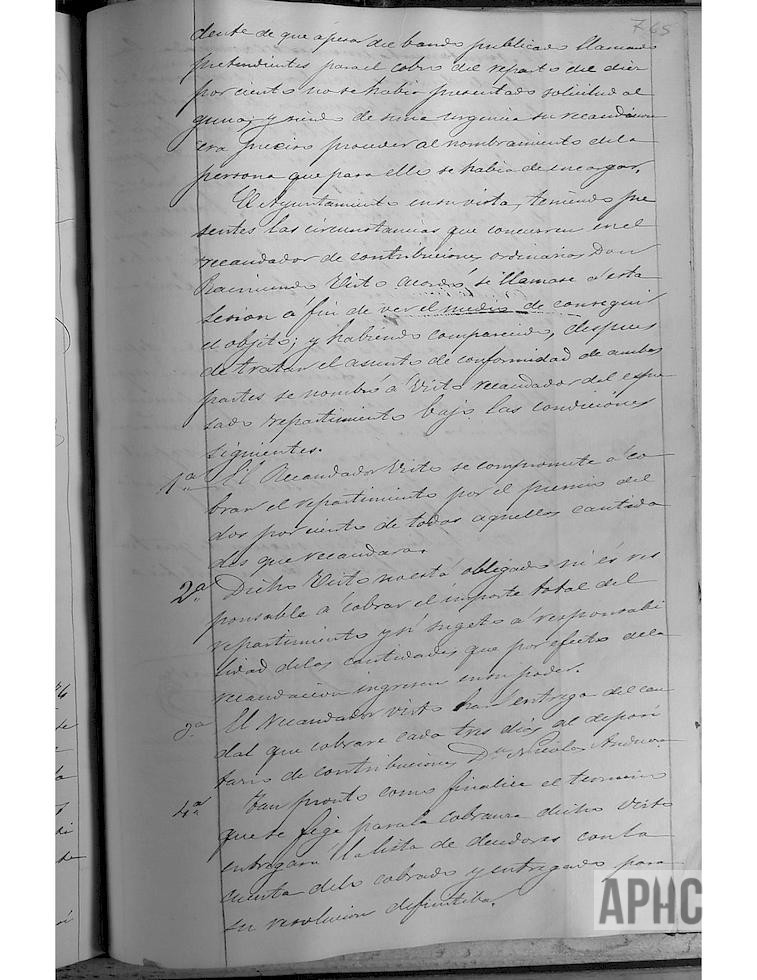 765
dente de que apesar del bando publicado llamando
pretendientes para el cobro del reparto del diez
por ciento no se habia presentado solicitud al
guna; y siendo de suma urgencia su recaudacion
era preciso proceder al nombramiento de la
persona que para ello se habia de encargar.
El Ayuntamiento en su vista, teniendo pre
sentes las circunstancias que concurren en el
recaudador de contribuciones ordinarias Don
Raimundo Visto acordó se llamase a esta
sesion á fin de ver el medio de conseguir
el objeto; y habiendo comparecido, despues
de tratar el asunto de conformidad de ambas
partes se nombró á Visto recaudador del espre
sado repartimiento bajo las condiciones
siguientes.
1ª El Recaudador Visto se compromete á co
brar el repartimiento por el premio del
dos por ciento de todas aquellas cantida
des que recaudara.
2ª Dicho Visto no está obligado ni és res
ponsable á cobrar el importe total del
repartimiento y si sugeto á responsabi
lidad de las cantidades que por efecto de la
recaudacion ingresen en su poder.
3ª El Recaudador Visto hará entrega del cau
dal que cobrare cada tres dias al deposi
tario de contribuciones Dn Nicolas
4ª Tan pronto como finalice el termino
que se fige para la cobranza dicho Visto
entregará la lista de deudores con la
cuenta de lo cobrado y entregado para
su resolucion definitiba.
APHC